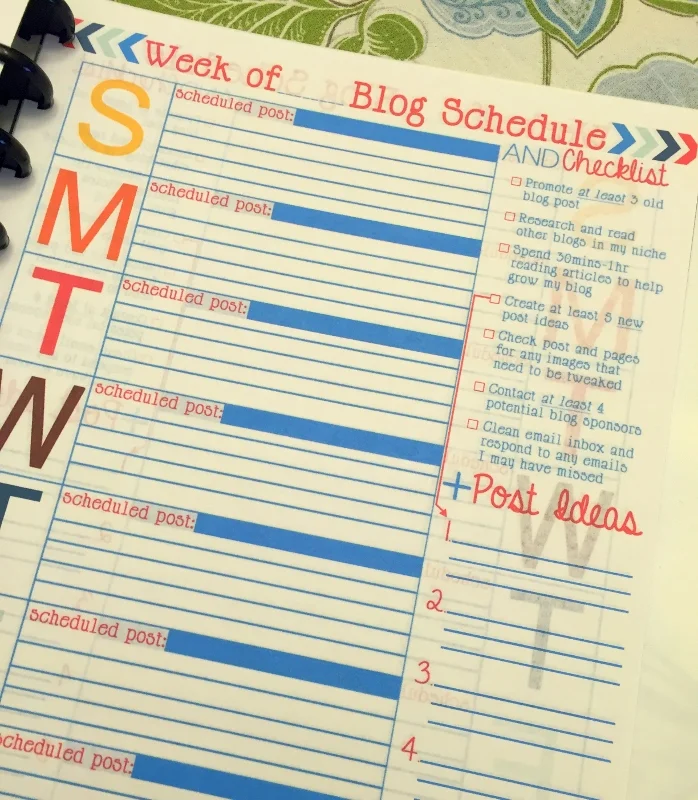 Week of Blog Schedule
AND Checklist
S
scheduled post:
M
scheduled post:
T
scheduled post:
W
scheduled post:
T
scheduled post:
scheduled post:
scheduled post:
Promote at least 3 old
blog post
Research and read
other blogs in my niche
Spend 30mins-1hr
reading articles to help
grow my blog
Create at least 5 new
post ideas
Check post and pages
for any images that
need to be tweaked
Contact at least 4
potential blog sponsors
Clean email inbox and
respond to any emails
I may have missed
+Post Ideas
1.
2.
3.
4.